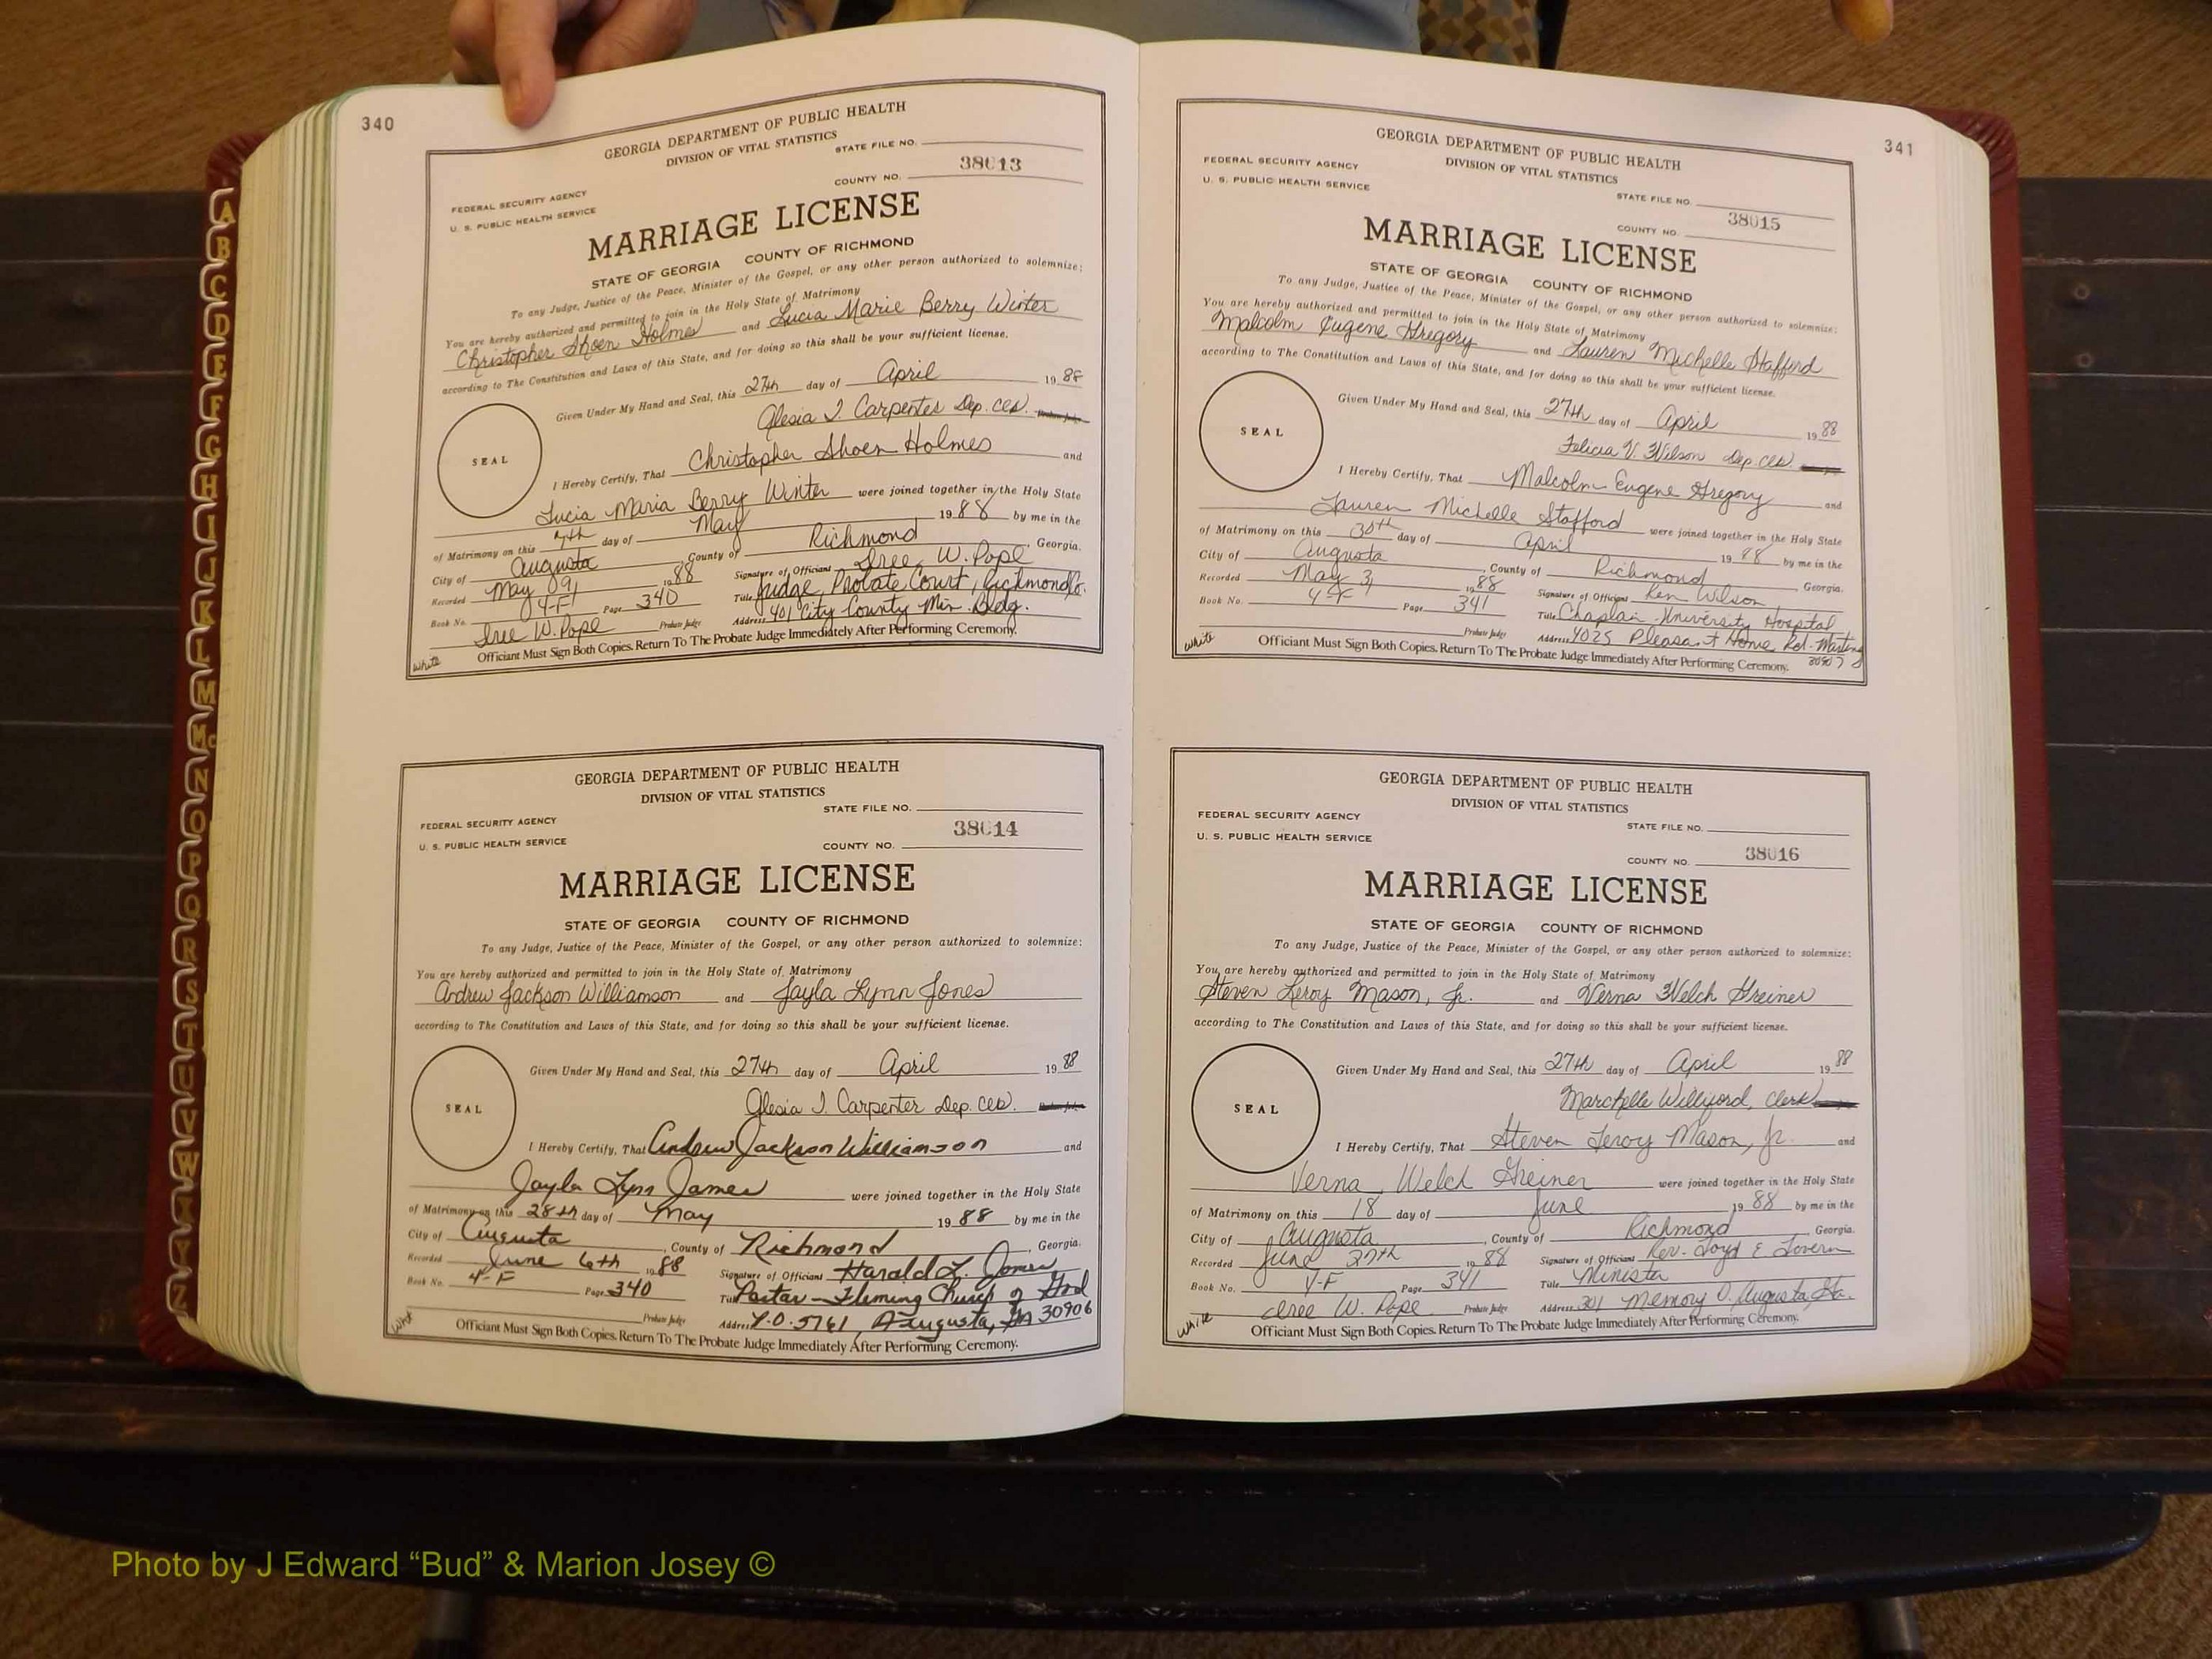 340
GEORGIA DEPARTMENT OF PUBLIC HEALTH
DIVISION OF VITAL STATISTICS
STATE FILE NO.
38013
COUNTY NO.
FEDERAL SECURITY AGENCY
U. S. PUBLIC HEALTH SERVICE
MARRIAGE LICENSE
STATE OF GEORGIA COUNTY OF RICHMOND
To any Judge, Justice of the Peace, Minister of the Gospel, or any other person authorized to solemnize:
You are hereby authorized and permitted to join in the Holy State of Matrimony
Christopher Shoen Holmes and Lucia Marie Berry Winter
according to The Constitution and Laws of this State, and for doing so this shall be your sufficient license.
Given Under My Hand and Seal, this 27th day of April 1988
Glesia J. Carpenter Dep. Clk.
SEAL
I Hereby Certify, That Christopher Shoen Holmes and
Lucia Maria Berry Winter were joined together in the Holy State
of Matrimony on this 7th day of May 1988 by me in the
City of Augusta County of Richmond, Georgia.
Recorded May 9, 1988 Signature of Officiant Iree W. Pope
Book No. 4-F Page 340 Title Judge, Probate Court, Richmond Co.
Iree W. Pope Probate Judge Address 401 City County Mun. Bldg.
White Officiant Must Sign Both Copies. Return To The Probate Judge Immediately After Performing Ceremony.
GEORGIA DEPARTMENT OF PUBLIC HEALTH
DIVISION OF VITAL STATISTICS
STATE FILE NO.
FEDERAL SECURITY AGENCY
38014
U. S. PUBLIC HEALTH SERVICE
COUNTY NO.
MARRIAGE LICENSE
STATE OF GEORGIA COUNTY OF RICHMOND
To any Judge, Justice of the Peace, Minister of the Gospel, or any other person authorized to solemnize:
You are hereby authorized and permitted to join in the Holy State of Matrimony
Andrew Jackson Williamson and Jayla Lynn Jones
according to The Constitution and Laws of this State, and for doing so this shall be your sufficient license.
Given Under My Hand and Seal, this 27th day of April 1988
Glesia J. Carpenter Dep. Clk.
SEAL
I Hereby Certify, That Andrew Jackson Williamson and
Jayla Lynn James were joined together in the Holy State
of Matrimony on this 28th day of May 1988 by me in the
City of Augusta, County of Richmond, Georgia.
Recorded June 6th 1988 Signature of Officiant Harald L. James
Book No. 4-F Page 340 Title Pastor - Fleming Church of God
Probate Judge Address P.O. 5761, Augusta, GA 30906
White Officiant Must Sign Both Copies. Return To The Probate Judge Immediately After Performing Ceremony.
341
GEORGIA DEPARTMENT OF PUBLIC HEALTH
DIVISION OF VITAL STATISTICS
FEDERAL SECURITY AGENCY
U. S. PUBLIC HEALTH SERVICE
STATE FILE NO.
38015
COUNTY NO.
MARRIAGE LICENSE
STATE OF GEORGIA COUNTY OF RICHMOND
To any Judge, Justice of the Peace, Minister of the Gospel, or any other person authorized to solemnize:
You are hereby authorized and permitted to join in the Holy State of Matrimony
Malcolm Eugene Gregory and Lauren Michelle Stafford
according to The Constitution and Laws of this State, and for doing so this shall be your sufficient license.
Given Under My Hand and Seal, this 27th day of April 1988
Felicia V. Wilson Dep. Clk.
SEAL
I Hereby Certify, That Malcolm Eugene Gregory and
Lauren Michelle Stafford were joined together in the Holy State
of Matrimony on this 30th day of April 1988 by me in the
City of Augusta, County of Richmond, Georgia.
Recorded May 3, 1988 Signature of Officiant Ken Wilson
Book No. 4-F Page 341 Title Chaplain University Hospital
Probate Judge Address 4025 Pleasant Home Rd. Martinez
30907
White Officiant Must Sign Both Copies. Return To The Probate Judge Immediately After Performing Ceremony.
GEORGIA DEPARTMENT OF PUBLIC HEALTH
DIVISION OF VITAL STATISTICS
FEDERAL SECURITY AGENCY
STATE FILE NO.
U. S. PUBLIC HEALTH SERVICE
38016
COUNTY NO.
MARRIAGE LICENSE
STATE OF GEORGIA COUNTY OF RICHMOND
To any Judge, Justice of the Peace, Minister of the Gospel, or any other person authorized to solemnize:
You are hereby authorized and permitted to join in the Holy State of Matrimony
Steven Leroy Mason, Jr. and Verna Welch Greiner
according to The Constitution and Laws of this State, and for doing so this shall be your sufficient license.
Given Under My Hand and Seal, this 27th day of April 1988
Marchelle Williford, Clerk
SEAL
I Hereby Certify, That Steven Leroy Mason, Jr. and
Verna Welch Greiner were joined together in the Holy State
of Matrimony on this 18 day of June 1988 by me in the
City of Augusta, County of Richmond, Georgia.
Recorded June 27th 1988 Signature of Officiant Rev. Loyd E. Lovern
Book No. 4-F Page 341 Title Minister
Iree W. Pope Probate Judge Address 301 Memory D. Augusta, Ga.
White Officiant Must Sign Both Copies. Return To The Probate Judge Immediately After Performing Ceremony.
A
B
C
D
E
F
G
H
I
J
K
L
M
Mc
N
O
P
Q
R
S
T
U
V
W
X
Y
Z
Photo by J Edward “Bud” & Marion Josey ©